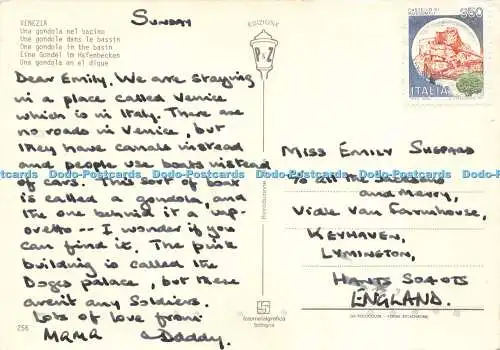 VENEZIA
Una gondola nel bacino
Une gondole dans le bassin
One gondola in the basin
Eine Gondel im Hafenbecken
Una gondola en el digue
Sunday
Dear Emily, We are staying
in a place called Venice
which is in Italy. There are
no roads in Venice, but
they have canals instead
and people use boats instead
of cars. This sort of boat
is called a gondola, and
the one behind it a vap-
oretto -- I wonder if you
can find it. The pink
building is called the
Doges palace, but there
aren't any Soldiers.
Lots of love from
Mama Daddy.
256
EDIZIONE
P&Z
fotometalgrafica
bologna
CASTELLO DI
350
ITALIA
Miss Emily Shepard
c/o all the
and Merry,
Vidle Van Farmhouse,
Keyhaven,
Lymington,
Hants SO4 0TS
ENGLAND.
Dodo-Postcards Dodo-Postcards Dodo-Postcards Dodo-Postcards Dodo-Postcards
Dodo-Postcards Dodo-Postcards Dodo-Postcards Dodo-Postcards Dodo-Postcards